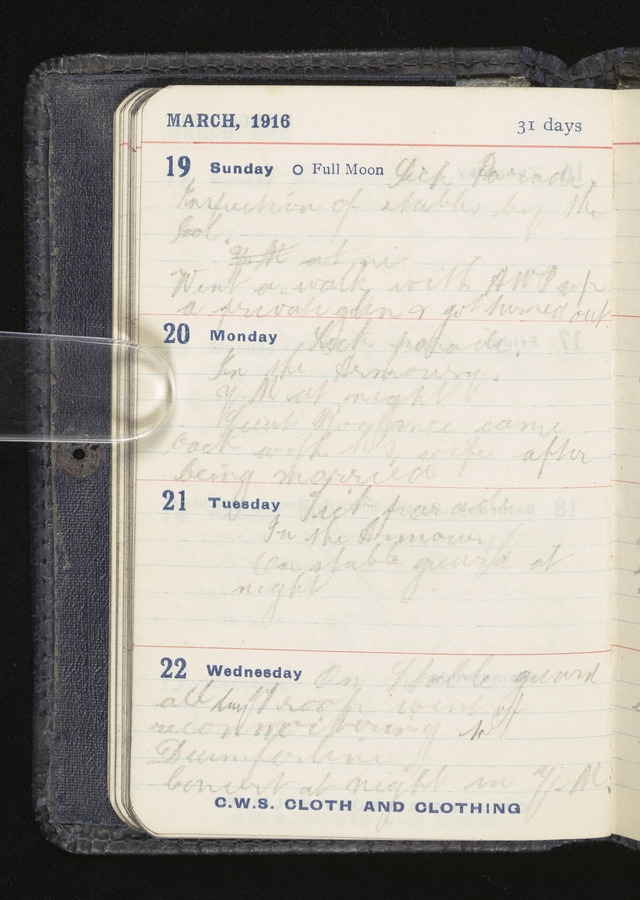 MARCH, 1916 31 days
19 Sunday O Full Moon Sick Parade.
Inspection of stables by the
Col.
at
Went a walk with AWP up
a private glen & got turned out
20 Monday Sick parade.
In the Armoury.
Y.M at night
Roylance came
back with his wife after
being married
21 Tuesday Sick parade
In the Armoury
On stable guard at
night
22 Wednesday On Stable guard
all day Troop went off
reconnoitering to
Dunfermline
Concert at night in Y.M.
C.W.S. CLOTH AND CLOTHING